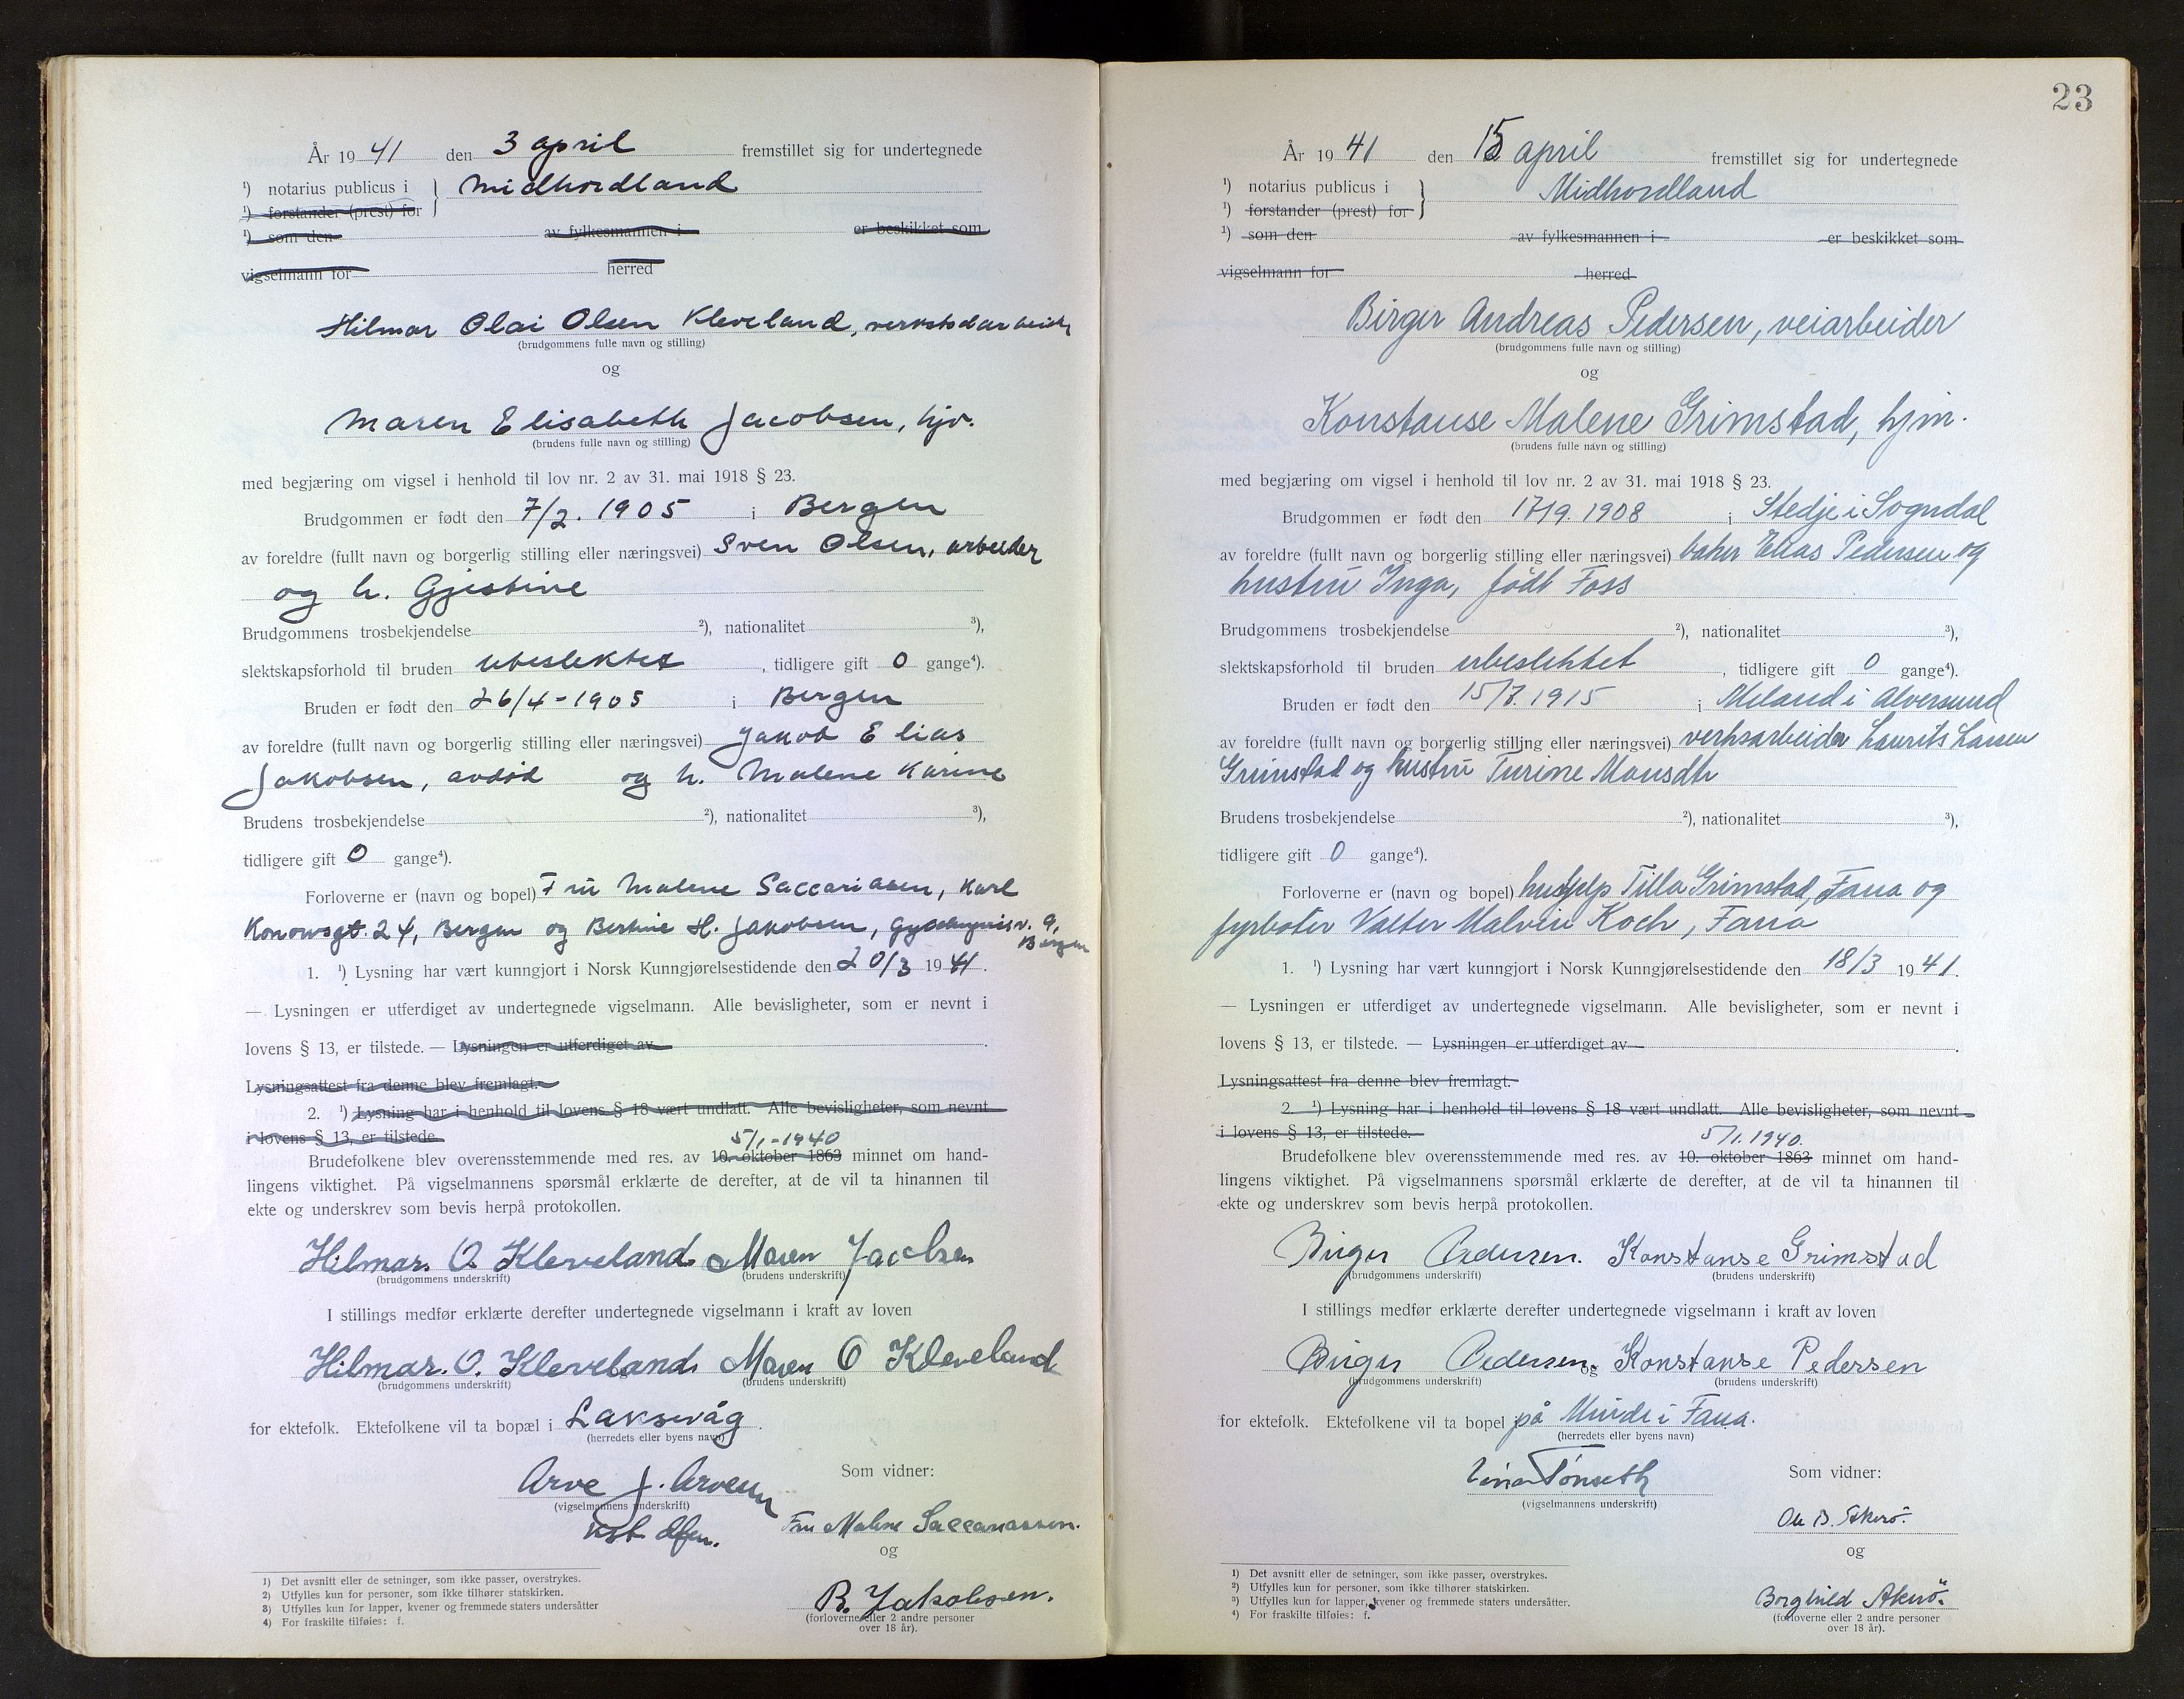 År 19 41 den 3 april fremstillet sig for undertegnede
¹) notarius publicus i } Midhordland
¹) forstander (prest) for
¹) som den av fylkesmannen i er beskikket som
vigselmann for herred
Hilmar Olai Olsen Kleveland, verkstedarbeider
(brudgommens fulle navn og stilling)
og
Maren Elisabeth Jacobsen, hjv.
(brudens fulle navn og stilling)
med begjæring om vigsel i henhold til lov nr. 2 av 31. mai 1918 § 23.
Brudgommen er født den 7/2. 1905 i Bergen
av foreldre (fullt navn og borgerlig stilling eller næringsvei) Sven Olsen, arbeider
og h. Gjestine
Brudgommens trosbekjendelse ²), nationalitet ³),
slektskapsforhold til bruden ubeslektet, tidligere gift 0 gange⁴).
Bruden er født den 26/4-1905 i Bergen
av foreldre (fullt navn og borgerlig stilling eller næringsvei) Jakob Elias
Jakobsen, avdød og h. Malene Karine
Brudens trosbekjendelse ²), nationalitet ³),
tidligere gift 0 gange⁴).
Forloverne er (navn og bopel) Fru Malene Saccariasen, Karl
Konowsgt. 24, Bergen og Bertine H. Jakobsen, v. 9,
Bergen
1. ¹) Lysning har vært kunngjort i Norsk Kunngjørelsestidende den 20/3 19 41.
— Lysningen er utferdiget av undertegnede vigselmann. Alle bevisligheter, som er nevnt i
lovens § 13, er tilstede. — Lysningen er utferdiget av
Lysningsattest fra denne blev fremlagt.
2. ¹) Lysning har i henhold til lovens § 18 vært undlatt. Alle bevisligheter, som nevnt
i lovens § 13, er tilstede.
5/1-1940
Brudefolkene blev overensstemmende med res. av 10. oktober 1863 minnet om hand-
lingens viktighet. På vigselmannens spørsmål erklærte de derefter, at de vil ta hinannen til
ekte og underskrev som bevis herpå protokollen.
Hilmar O. Kleveland Maren Jacobsen
(brudgommens underskrift) (brudens underskrift)
I stillings medfør erklærte derefter undertegnede vigselmann i kraft av loven
Hilmar. O. Kleveland Maren O Kleveland
(brudgommens underskrift) (brudens underskrift)
for ektefolk. Ektefolkene vil ta bopæl i Laksevåg.
(herredets eller byens navn)
Arve J. Arvesen Som vidner:
(vigselmannens underskrift)
Fru Malene Saccariassen.
og
B. Jakobsen.
(forloverne eller 2 andre personer
over 18 år).
1) Det avsnitt eller de setninger, som ikke passer, overstrykes.
2) Utfylles kun for personer, som ikke tilhører statskirken.
3) Utfylles kun for lapper, kvener og fremmede staters undersåtter
4) For fraskilte tilføies: f.
23
År 19 41 den 15 april fremstillet sig for undertegnede
¹) notarius publicus i } Midhordland
¹) forstander (prest) for
¹) som den av fylkesmannen i er beskikket som
vigselmann for herred
Birger Andreas Pedersen, veiarbeider
(brudgommens fulle navn og stilling)
og
Konstanse Malene Grimstad, hjm.
(brudens fulle navn og stilling)
med begjæring om vigsel i henhold til lov nr. 2 av 31. mai 1918 § 23.
Brudgommen er født den 17/9. 1908 i Stedje i Sogndal
av foreldre (fullt navn og borgerlig stilling eller næringsvei) baker Elias Pedersen og
hustru Inga, født Foss
Brudgommens trosbekjendelse ²), nationalitet ³),
slektskapsforhold til bruden ubeslektet, tidligere gift 0 gange⁴).
Bruden er født den 15/7. 1915 i Meland i Alversund
av foreldre (fullt navn og borgerlig stilling eller næringsvei) verksarbeider Laurits Larsen
Grimstad og hustru Turine Monsdtr
Brudens trosbekjendelse ²), nationalitet ³),
tidligere gift 0 gange⁴).
Forloverne er (navn og bopel) hushjelp Tilla Grimstad, Fana og
fyrbøter Valter Malvin Koch, Fana
1. ¹) Lysning har vært kunngjort i Norsk Kunngjørelsestidende den 18/3 19 41.
— Lysningen er utferdiget av undertegnede vigselmann. Alle bevisligheter, som er nevnt i
lovens § 13, er tilstede. — Lysningen er utferdiget av
Lysningsattest fra denne blev fremlagt.
2. ¹) Lysning har i henhold til lovens § 18 vært undlatt. Alle bevisligheter, som nevnt
i lovens § 13, er tilstede.
5/1. 1940.
Brudefolkene blev overensstemmende med res. av 10. oktober 1863 minnet om hand-
lingens viktighet. På vigselmannens spørsmål erklærte de derefter, at de vil ta hinannen til
ekte og underskrev som bevis herpå protokollen.
Birger Pedersen. Konstanse Grimstad
(brudgommens underskrift) (brudens underskrift)
I stillings medfør erklærte derefter undertegnede vigselmann i kraft av loven
Birger Pedersen. og Konstanse Pedersen
(brudgommens underskrift) (brudens underskrift)
for ektefolk. Ektefolkene vil ta bopel på Minde i Fana.
(herredets eller byens navn)
Tønseth Som vidner:
(vigselmannens underskrift)
Ole B. Akerö.
og
Borghild Akerö.
(forloverne eller 2 andre personer
over 18 år).
1) Det avsnitt eller de setninger, som ikke passer, overstrykes.
2) Utfylles kun for personer, som ikke tilhører statskirken.
3) Utfylles kun for lapper, kvener og fremmede staters undersåtter.
4) For fraskilte tilføies: f.